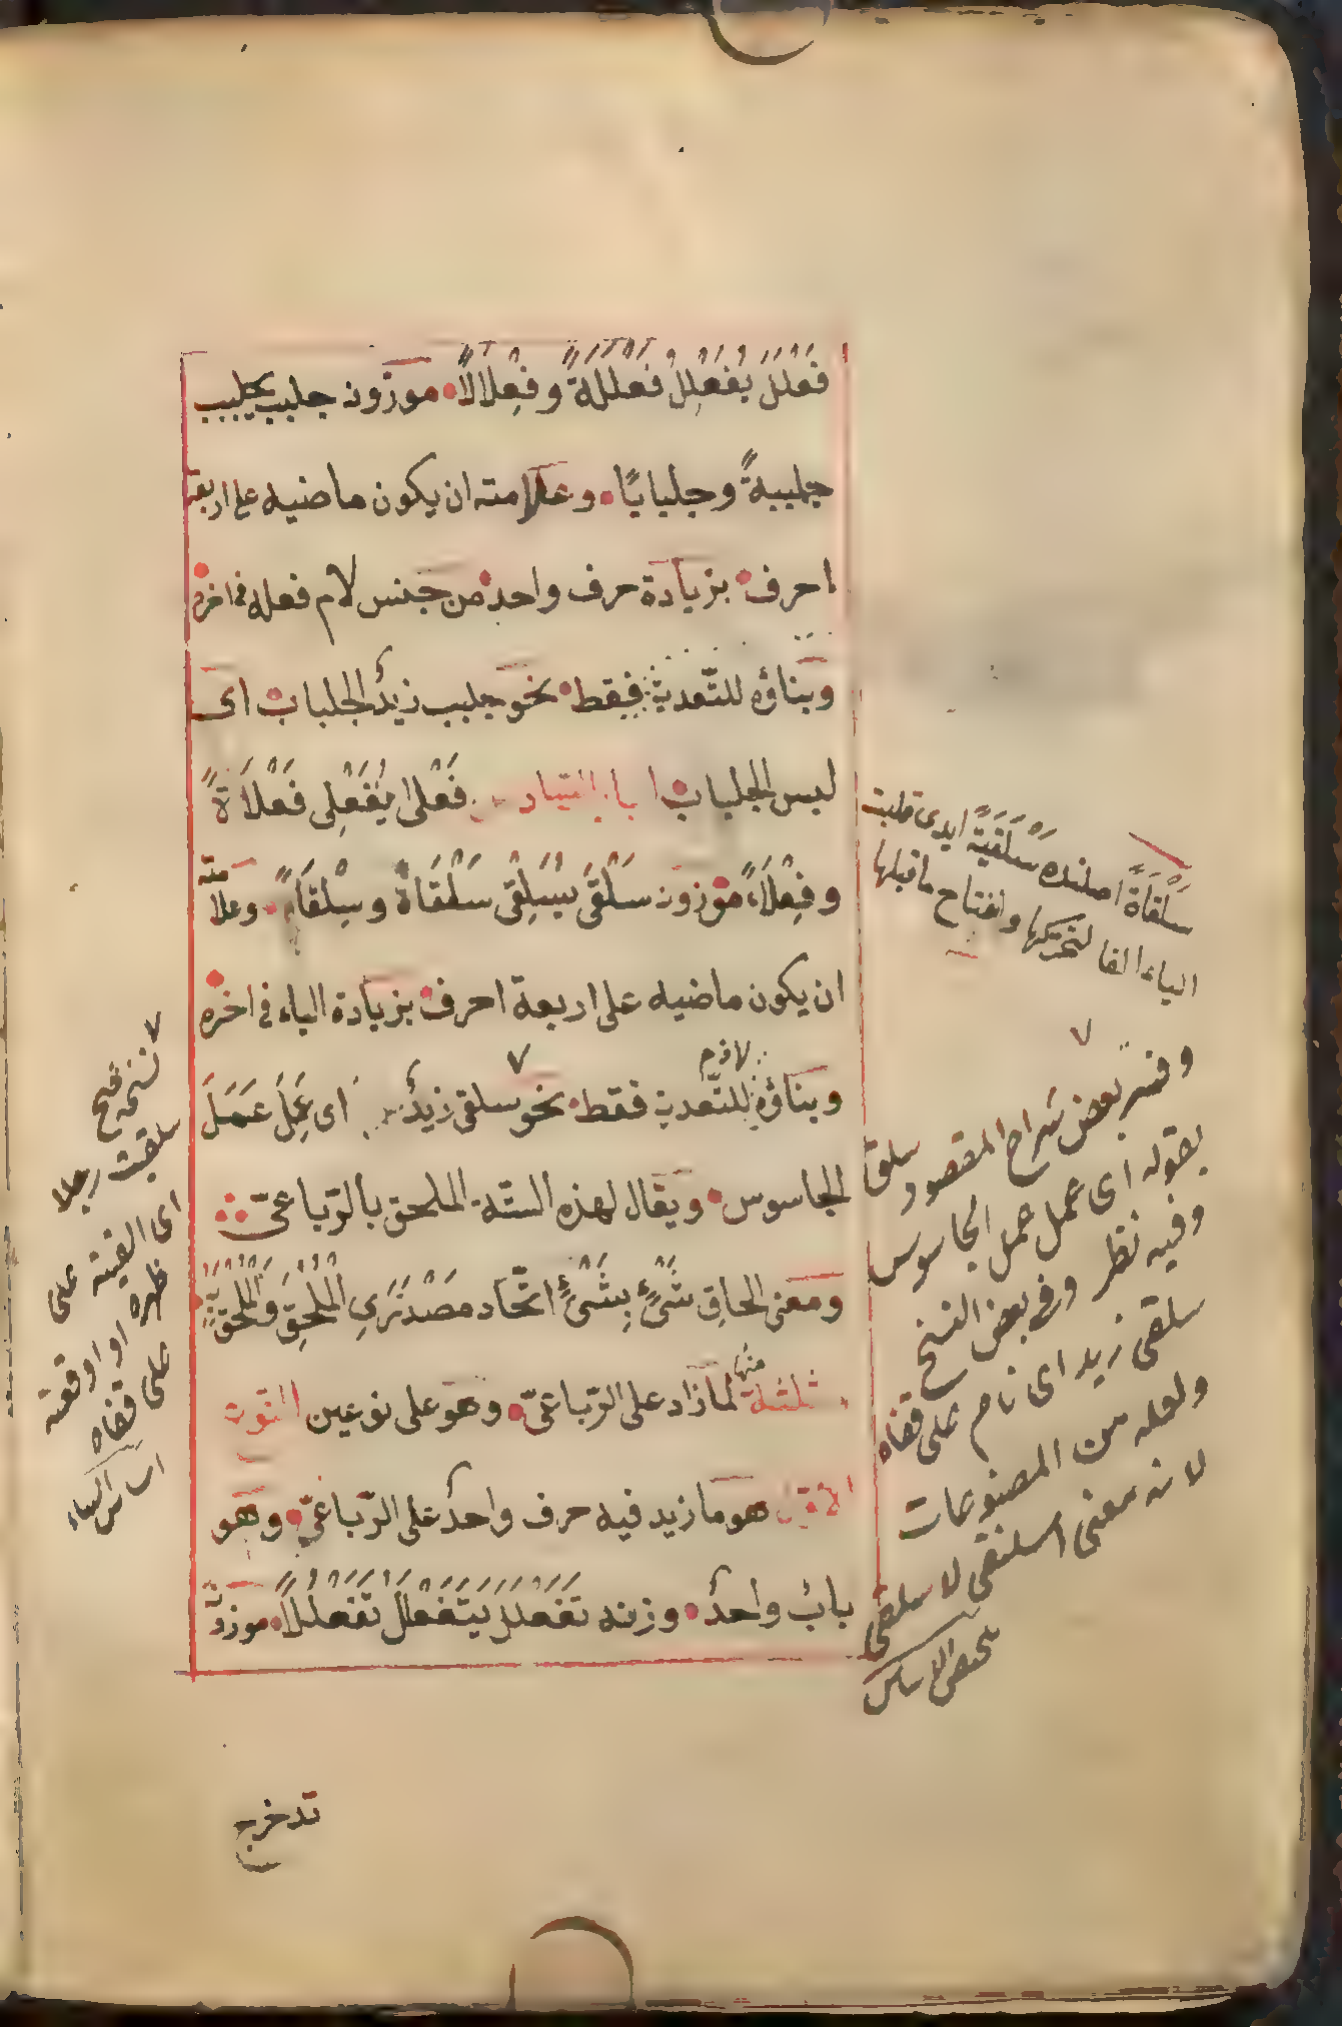 فَعْلَلَ يُفَعْلِلُ فَعْلَلَةً وفِعْلالًا موزون جلبب يجلبب
جلببةً وجلبابًا وعلامته ان يكون ماضيه على اربعة
احرف بزيادة حرف واحد من جنس لام فعله فى اخره
وبناؤه للتّعدية فقط نحو جلبب زيدٌ الجلباب اى
لبس الجلباب فَعْلى يُفَعْلِى فَعْلَاةً
وفِعْلَاءً موزون سَلْقَى يُسَلْقِى سَلْقَاةً وسِلْقَاءً وعلامته
ان يكون ماضيه على اربعة احرف بزيادة الياء فى اخره
لازم
وبناؤه للتّعدية فقط نحو سلقى زيدٌ اى عَمِلَ عَمَلَ
الجاسوس ويقال لهذه الستّة الملحق بالرّباعىّ
ومعنى الحاق شَىْءٍ بِشَىْءٍ اتّحاد مَصْدَرَىِ الْمُلْحِقِ وَالْمُلْحَقِ بِهِ
ثلثة منها لما زاد على الرّباعىّ وهو على نوعين النوع
الاوّل هو ما زيد فيه حرف واحدٌ على الرّباعىّ وهو
بابٌ واحدٌ وزنه تَفَعْلَلَ يَتَفَعْلَلُ تَفَعْلُلًا موزونه
تدحرج
سَلْقَاةً اصلنده سَلْقَيَةً ايدى قلبت
الياء الفا لتحركها وانفتاح ما قبلها
وفسر بعض شراح المقصود سلقى
بقوله اى عمل عمل الجاسوس
وفيه نظر وفى بعض النسخ
سلقى زيد اى نام على قفاه
ولعله من المصنوعات
لانه معنى اسلنقى لا سلقى
الاساس
نسخه
سلقيت رجلا
اى القيته على
ظهره او اوقعته
على قفاه
اساس البناء